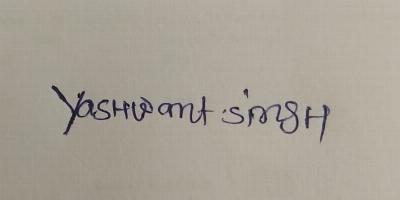 Yashwant singh